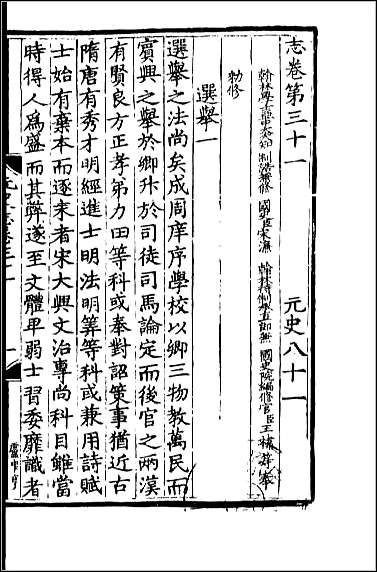 志卷第三十一　元史八十一
翰林學士亞中大夫知制誥兼修國史臣宋濂翰林待制承直郎兼國史院編修官臣王禕等奉
勑修
選舉一
選舉之法尚矣成周庠序學校以鄉三物教萬民而
賓興之舉於鄉升於司徒司馬論定而後官之兩漢
有賢良方正孝弟力田等科或奉對詔策事猶近古
隋唐有秀才明經進士明法明筭等科或兼用詩賦
士始有棄本而逐末者宋大興文治專尚科目雖當
時得人為盛而其弊遂至文體卑弱士習委靡識者
元史志卷三十一　一